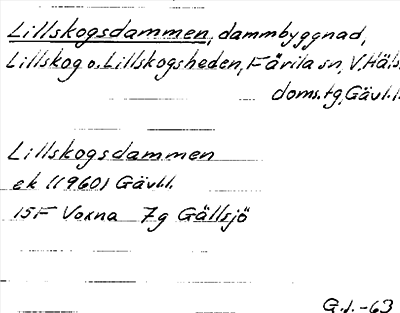 Lillskogsdammen, dammbyggnad,
Lillskog o. Lillskogsheden, Färila sn, V. Häls.
doms.tg, Gävl.l.
Lillskogsdammen
ek (1960) Gävl.l.
15F Voxna 7g Gällsjö
G.J.-63